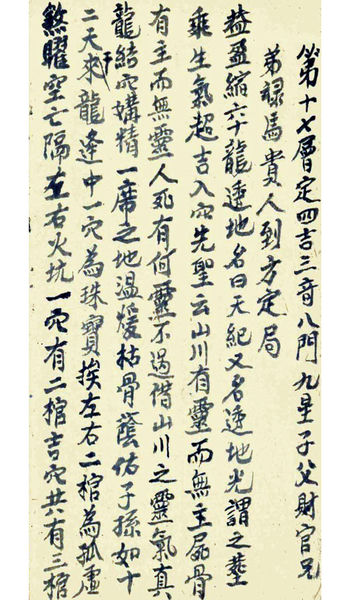 第十七層定四吉三奇八門九星子父財官兄
弟祿馬貴人到方定局
益盈縮六十龍透地名曰天紀又名透地光謂之塟
乘生氣超吉入穴先聖云山川有靈而無主屍骨
有主而無靈人死有何靈不過借山川之靈氣真
龍結穴媾精一席之地溫煖枯骨蔭佑子孫如十
二天干來龍逢中一穴為珠寶挨左右二棺為孤虛
煞曜空亡隔左右火坑一穴有二棺吉穴共有三棺